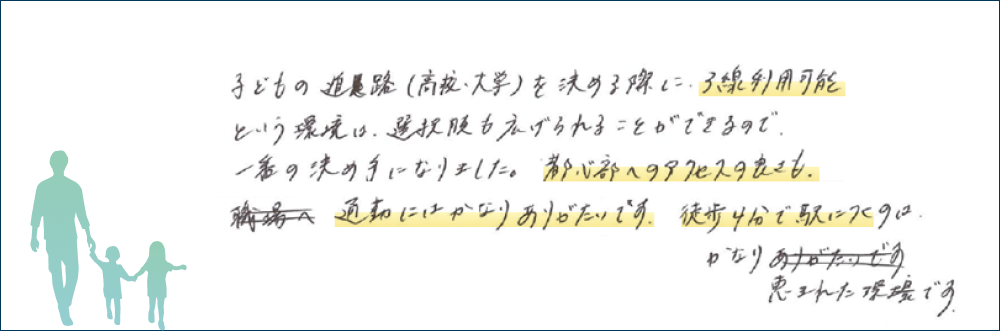 子どもの進路(高校・大学)を決める際に、3線利用可能
という環境は、選択肢も広げられることができるので、
一番の決め手になりました。都心部へのアクセスの良さも、
職場へ 通勤にはかなりありがたいです。徒歩4分で駅につくのは、
かなり ありがたいです
恵まれた環境です。